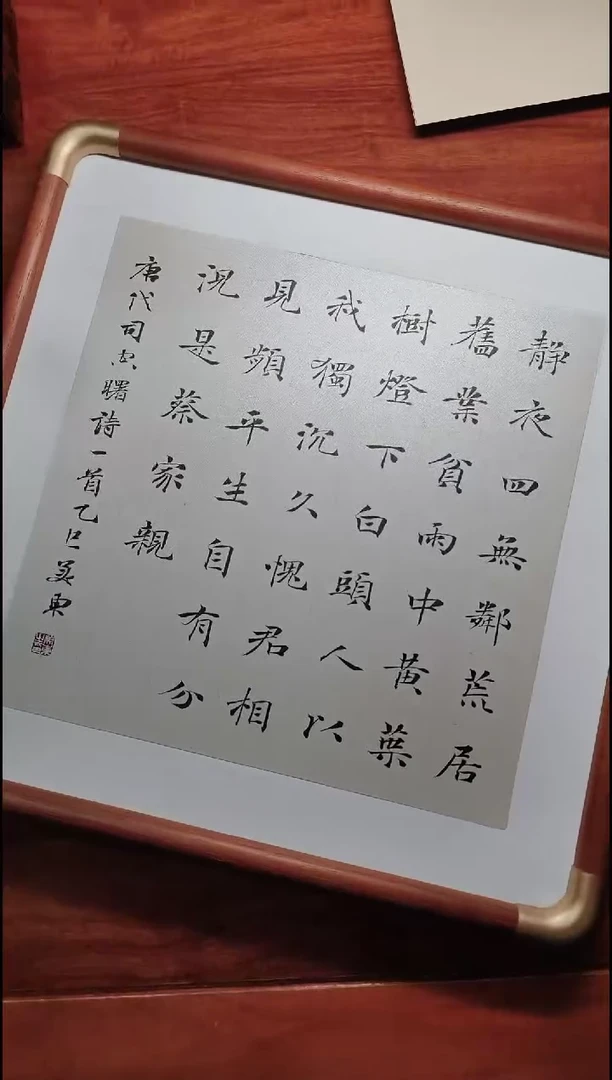 靜夜四無鄰荒居
舊業貧雨中黃葉
樹燈下白頭人以
我獨沉久愧君相
見頻平生自有分
況是蔡家親
唐代司空曙詩一首乙巳東